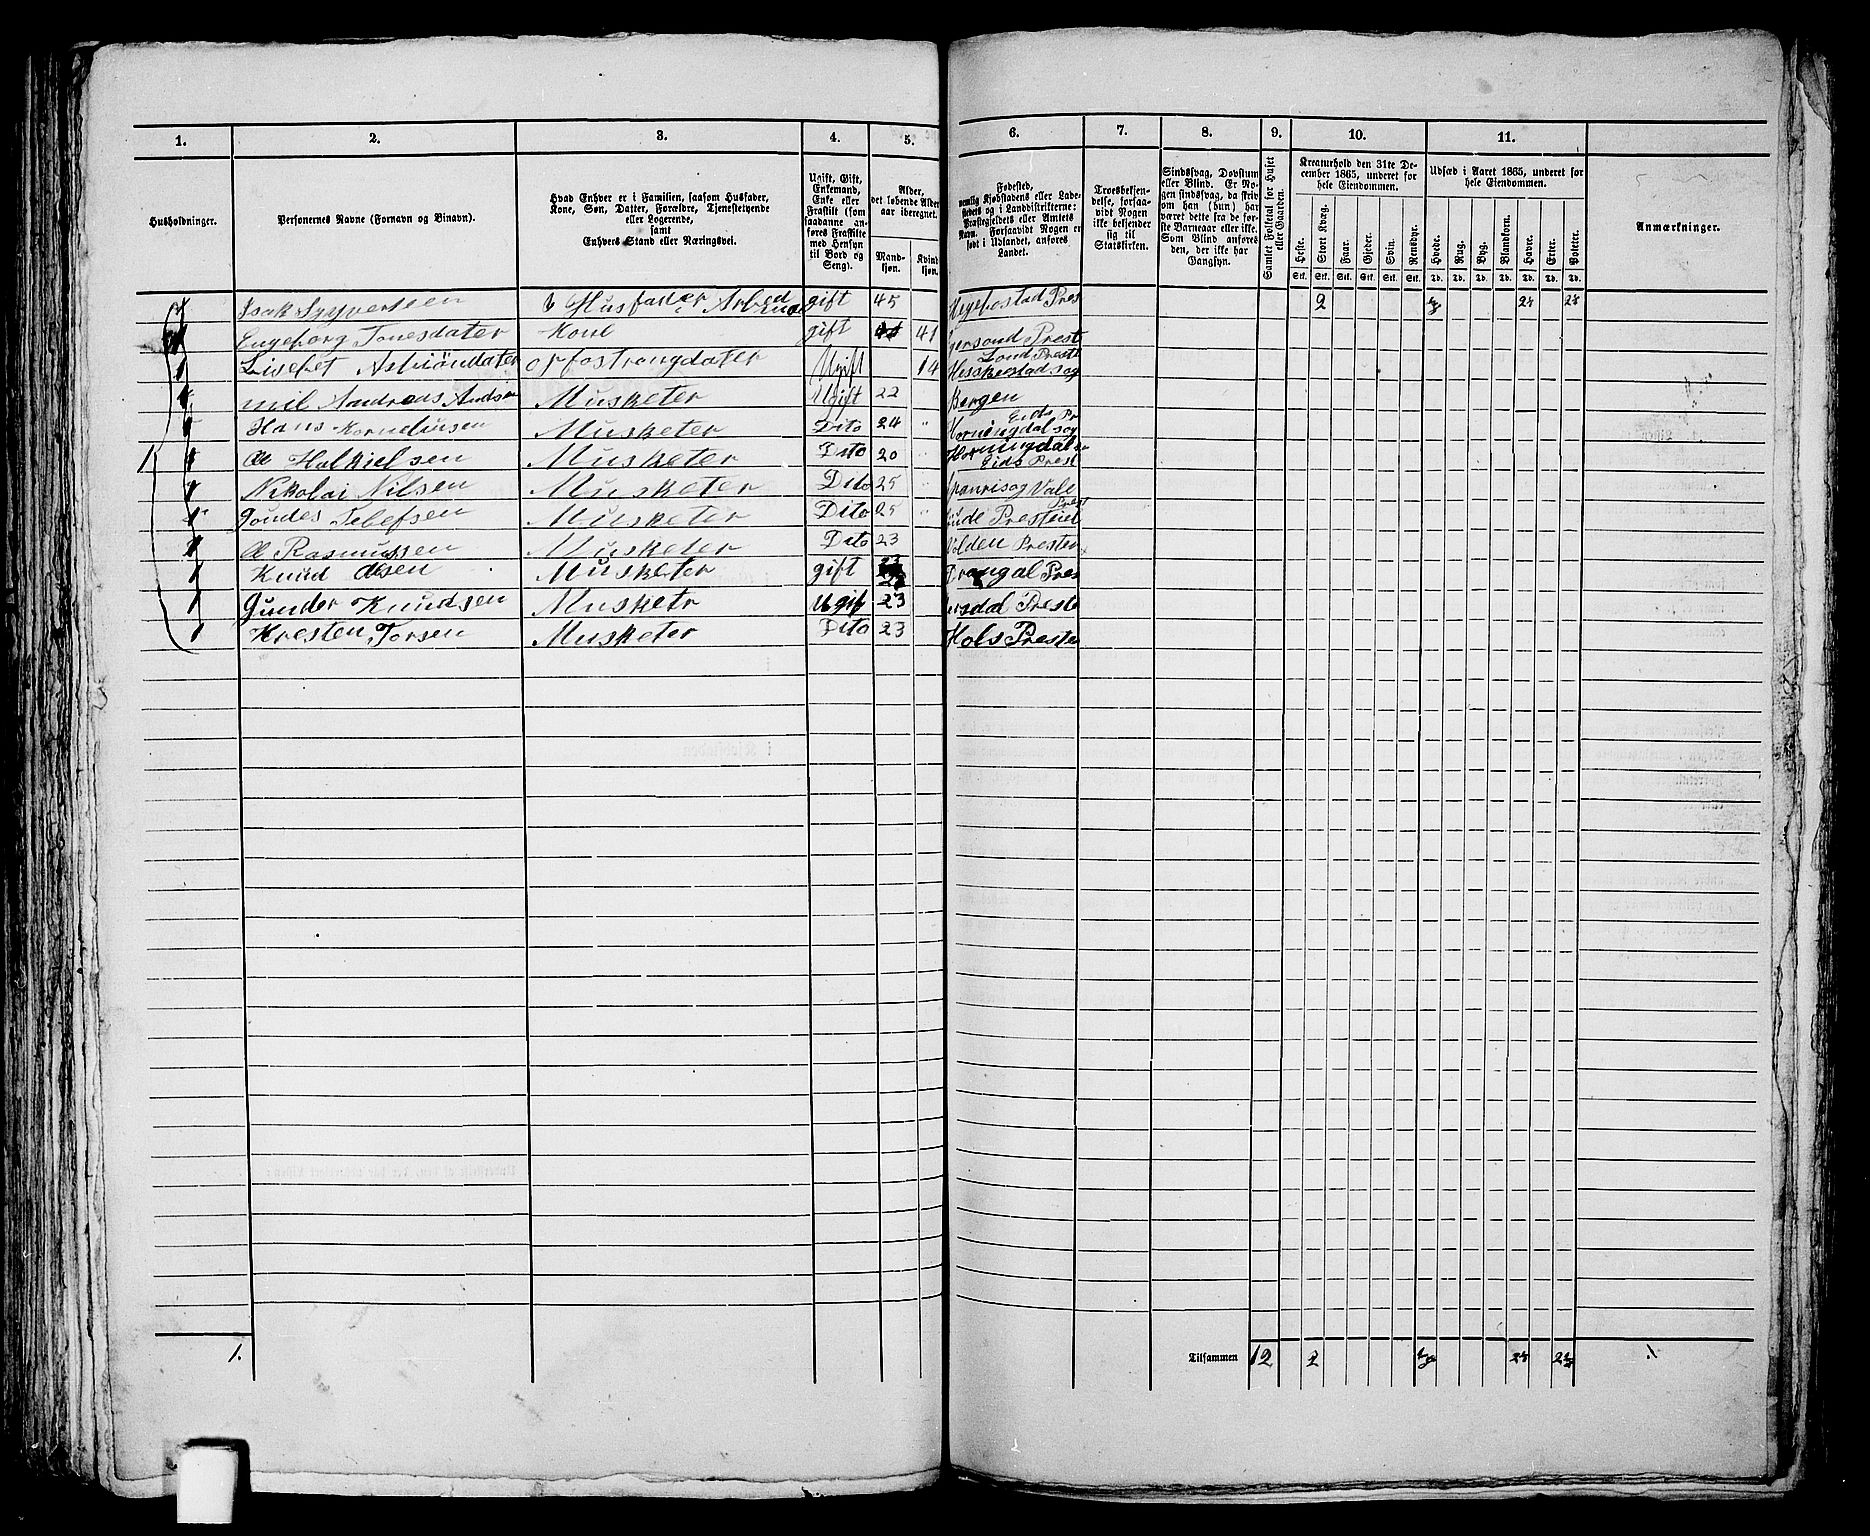 1. 2. 3. 4. 5. 6. 7. 8. 9. 10. 11.
Husholdninger.
Personernes Navne (Fornavn og Binavn).
Hvad Enhver er i Familien, saasom Husfader,
Kone, Søn, Datter, Forældre, Tjenestetyende
eller Logerende,
samt
Enhvers Stand eller Næringsvei.
Ugift, Gift,
Enkemand,
Enke eller
Fraskilt (som
saadanne an-
føres Fraskilte
med Hensyn
til Bord og
Seng).
Alder,
det løbende Alder
aar iberegnet.
Mand-
kjøn.
Kvind
kjøn.
Fødested,
nemlig Kjøbstadens eller Lade-
stedets og i Landdistrikterne:
Præstegjeldets eller Amtets
Navn. Forsaavidt Nogen er
født i Udlandet, anføres
Landet.
Troesbekjen-
delse, forsaa-
vidt Nogen
ikke bekjender
sig til
Statskirken.
Sindssvag, Døvstum
eller Blind. Er No-
gen sindssvag, da skriv
om han (hun) har
været dette fra de før-
ste Barneaar eller ikke.
Som Blind anføres
den, der ikke har
Gangsyn.
Samlet Folketal for Huset
eller Gaarden.
Kreaturhold den 31te De-
cember 1865, underet for
hele Eiendommen.
Heste. Stort Kvæg. Faar. Gjeder. Svin. Rensdyr.
Stk. Stk. Stk. Stk. Stk. Stk.
Udsæd i Aaret 1865, underet for
hele Eiendommen.
Hvede. Rug. Byg. Blandkorn. Havre. Erter. Poteter.
Td. Td. Td. Td. Td. Td. Td.
Anmærkninger.
Isak Syvertsen Husfader Arbed gift 45 Hegebostad Pres 2
Engeborg Tonesdater Kone gift 41 Prest
Lisebet dater Ugift 14 Lond Preste
Heskestad sog
Andreas Musketer Ugift 22 Bergen
Hans Korneliusen Musketer Dito 24 Eids Pr
Horningdal sog
1 Ole Halkielsen Musketer Dito 20 Horningdal
Eids Prest
Nikolai Nilsen Musketer Dito 25 Vale
Prest
Musketer Dito 25
Ole Rasmussen Musketer Dito 23 Volden Prester
Knud Olsen Musketer gift Drangal Pres
Gunder Knudsen Musketr Ugif 23 Preste
Kresten Torsen Musketer Dito 23 Hols Preste
1. Tilsammen 12 2